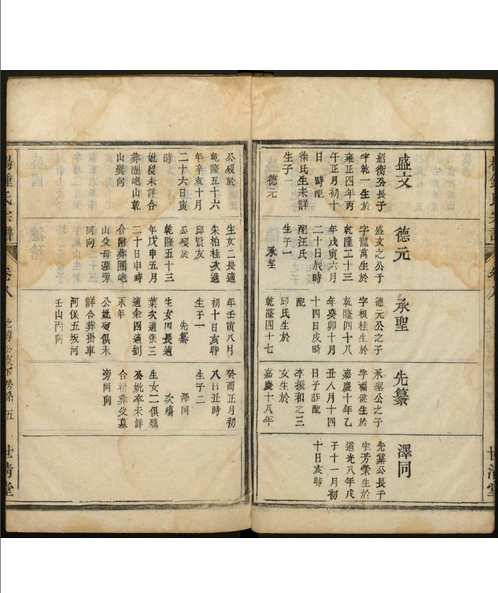 盛文
紹衡公長子
字乾一生於
雍正四年丙
午正月初十
日 時配
徐氏生未詳
生子一
德元
德元
盛文公之子
字富萬生於
乾隆二十三
年戊寅六月
二十日辰時
配汪氏
生子一
承聖
承聖
德元公之子
字根桂生於
乾隆四十八
年癸卯十月
十四日戌時
配
邱氏生於
乾隆四十七
先纂
承聖公之子
字福健生於
嘉慶十年乙
丑八月十四
日子時配
李振和之三
女生於
嘉慶十八年
澤同
先纂公長子
字芳榮生於
道光八年戊
子十一月初
十日亥時
公歿於
乾隆五十六
年辛亥十月
二十六日寅
時
妣歿未詳合
葬團山乾
山巽向
生女二長適
朱柏桂次適
邱賢友
公歿於
乾隆五十三
年戊申五月
二十日申時
合附葬團
山父母墓旁
同向
年壬寅八月
初十日亥時
生子一
先纂
生女四長適
葉次適張三
適余四適劉
禾年
公妣歿俱未
詳合葬掛車
河保五坂河
壬山丙向
癸酉正月初
八日丑時
生子二
澤同
次殤
生女二俱殤
公妣卒未詳
合祔葬父墓
旁同向
氏宗譜
卷八
五
世清堂